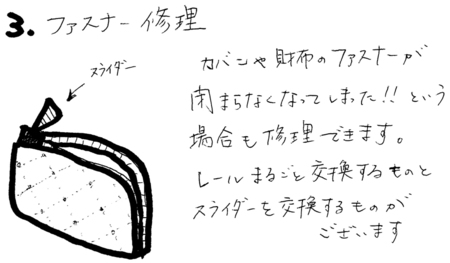 3. ファスナー修理
スライダー
カバンや財布のファスナーが
閉まらなくなってしまった!! という
場合も修理できます。
レールまるごと交換するものと
スライダーを交換するものが
ございます